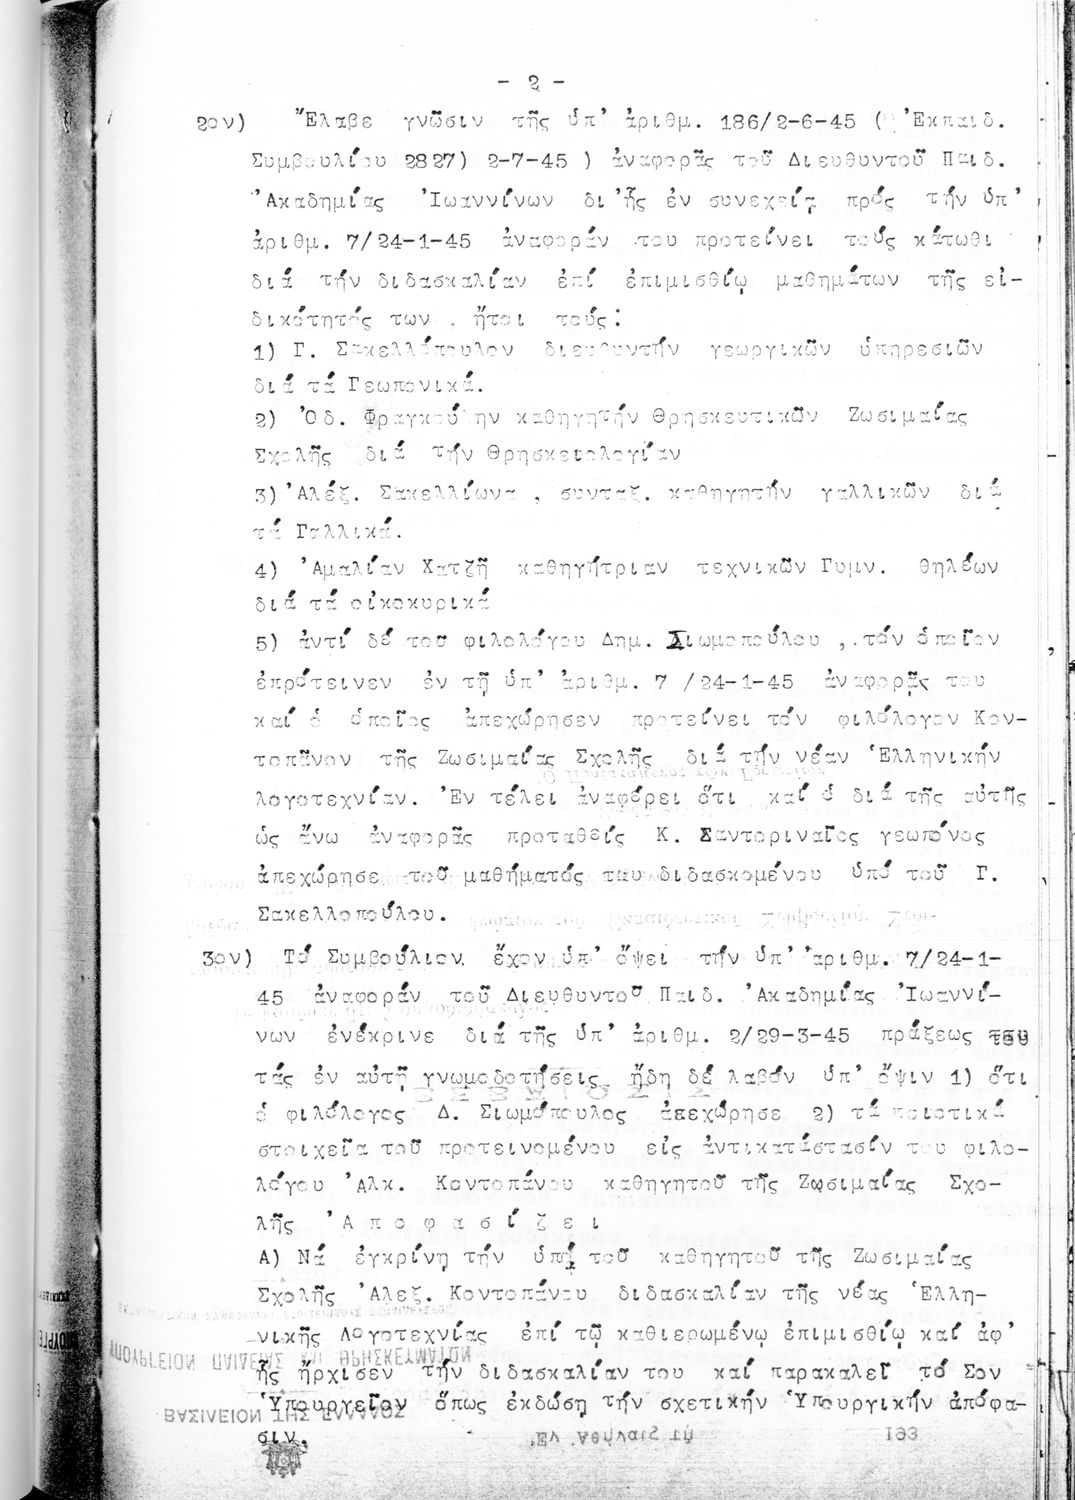 - 2 -
2ον) Ἔλαβε γνῶσιν τῆς ὑπ' ἀριθμ. 186/2-6-45 ( Ἐκπαιδ.
Συμβουλίου 2827) 2-7-45 ) ἀναφορᾶς τοῦ Διευθυντοῦ Παιδ.
Ἀκαδημίας Ἰωαννίνων δι'ἧς ἐν συνεχείᾳ πρός τήν ὑπ'
ἀριθμ. 7/24-1-45 ἀναφοράν του προτείνει τούς κάτωθι
διά τήν διδασκαλίαν ἐπί ἐπιμισθίῳ μαθημάτων τῆς εἰ-
δικότητός των . ἤτοι τούς:
1) Γ. Σακελλάπουλον διευθυντήν γεωργικῶν ὑπηρεσιῶν
διά τά Γεωπονικά.
2) Ὀδ. Φραγκούλην καθηγητήν Θρησκευτικῶν Ζωσιμαίας
Σχολῆς διά τήν Θρησκειολογίαν
3) Ἀλέξ. Σακελλίωνα , συνταξ. καθηγητήν γαλλικῶν διά
τά Γαλλικά.
4) Ἀμαλίαν Χατζῆ καθηγήτριαν τεχνικῶν Γυμν. θηλέων
διά τά οἰκοκυρικά
5) ἀντί δέ του φιλολόγου Δημ. Σιωμοπούλου , τόν ὁποῖον
ἐπρότεινεν ἐν τῇ ὑπ' ἀριθμ. 7 /24-1-45 ἀναφορᾷς του
καί ὁ ὁποῖος ἀπεχώρησεν προτείνει τόν φιλόλογον Κον-
τοπᾶνον τῆς Ζωσιμαίας Σχολῆς διά τήν νέαν Ἑλληνικήν
λογοτεχνίαν. Ἐν τέλει ἀναφέρει ὅτι καί ὁ διά τῆς αὐτῆς
ὡς ἄνω ἀναφορᾶς προταθείς Κ. Σαντοριναῖος γεωπόνος
ἀπεχώρησε τοῦ μαθήματός του διδασκομένου ὑπό τοῦ Γ.
Σακελλοπούλου.
3ον) Τό Συμβούλιον ἔχον ὑπ' ὄψει τήν ὑπ' ἀριθμ. 7/24-1-
45 ἀναφοράν τοῦ Διευθυντοῦ Παιδ. Ἀκαδημίας Ἰωαννί-
νων ἐνέκρινε διά τῆς ὑπ' ἀριθμ. 2/29-3-45 πράξεως του
τάς ἐν αὐτῇ γνωμοδοτήσεις, ἤδη δέ λαβόν ὑπ' ὄψιν 1) ὅτι
ὁ φιλόλογος Δ. Σιωμόπουλος ἀπεχώρησε 2) τά ποιοτικά
στοιχεῖα τοῦ προτεινομένου εἰς ἀντικατάστασίν του φιλο-
λόγου Ἀλκ. Κοντοπάνου καθηγητοῦ τῆς Ζωσιμαίας Σχο-
λῆς Ἀ π ο φ α σ ί ζ ε ι
Α) Νά ἐγκρίνῃ τήν ὑπό τοῦ καθηγητοῦ τῆς Ζωσιμαίας
Σχολῆς Ἀλεξ. Κοντοπάνου διδασκαλίαν τῆς νέας Ἑλλη-
νικῆς Λογοτεχνίας ἐπί τῷ καθιερωμένῳ ἐπιμισθίῳ καί ἀφ'
ἧς ἤρχισεν τήν διδασκαλίαν του καί παρακαλεῖ τό Σον
Ὑπουργεῖον ὅπως ἐκδώσῃ τήν σχετικήν Ὑπουργικήν ἀπόφα-
σιν.